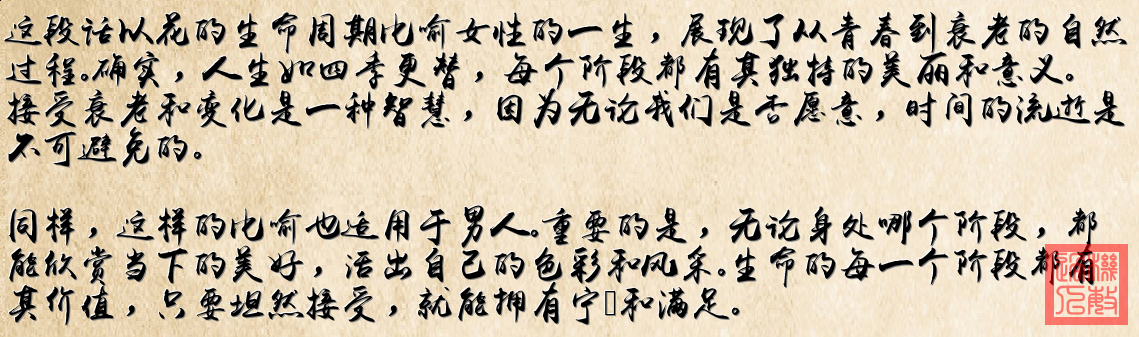 这段话以花的生命周期比喻女性的一生，展现了从青春到衰老的自然
过程。确实，人生如四季更替，每个阶段都有其独特的美丽和意义。
接受衰老和变化是一种智慧，因为无论我们是否愿意，时间的流逝是
不可避免的。
同样，这样的比喻也适用于男人。重要的是，无论身处哪个阶段，都
能欣赏当下的美好，活出自己的色彩和风采。生命的每一个阶段都有
其价值，只要坦然接受，就能拥有宁和满足。